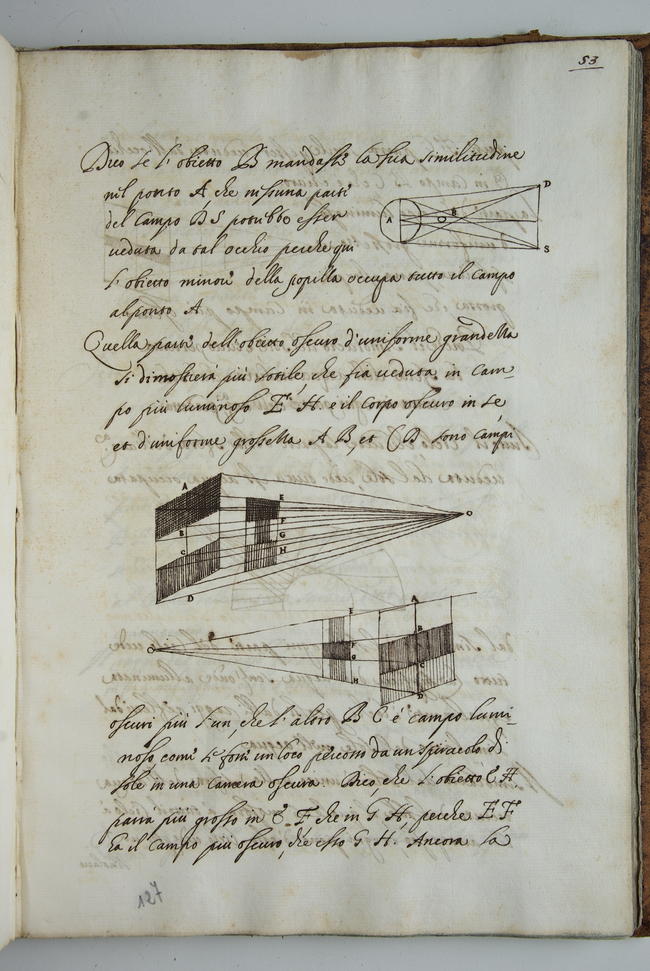 53
Dico se l'obietto B mandassi la sua similitudine
nel ponto A che nissuna parti
del campo BS potrebbe esser
veduta da tal occhio perche qui
l'obietto minori della popilla occupa tutto il campo
al ponto A
A
B
D
S
Quella parti dell'obietto oscuro d'uniforme grandezza
si dimostrerá piú sotile che sia veduta in cam-
po piú luminoso E. H. e il corpo oscuro in se
et d'uniforme grossezza A B, et C B sono campi
A
B
C
D
E
F
G
H
O
O
E
F
G
H
A
B
C
D
oscuri piú l'un, che l'altro B C é campo lumi-
noso, comi se fossi un loco percosso da un spiracolo di
sole in una camera oscura. Dico che l'obietto E H
parra piú grosso in E F che in G H, perche E F
ha il campo piú oscuro, che esso G H. Ancora la
127